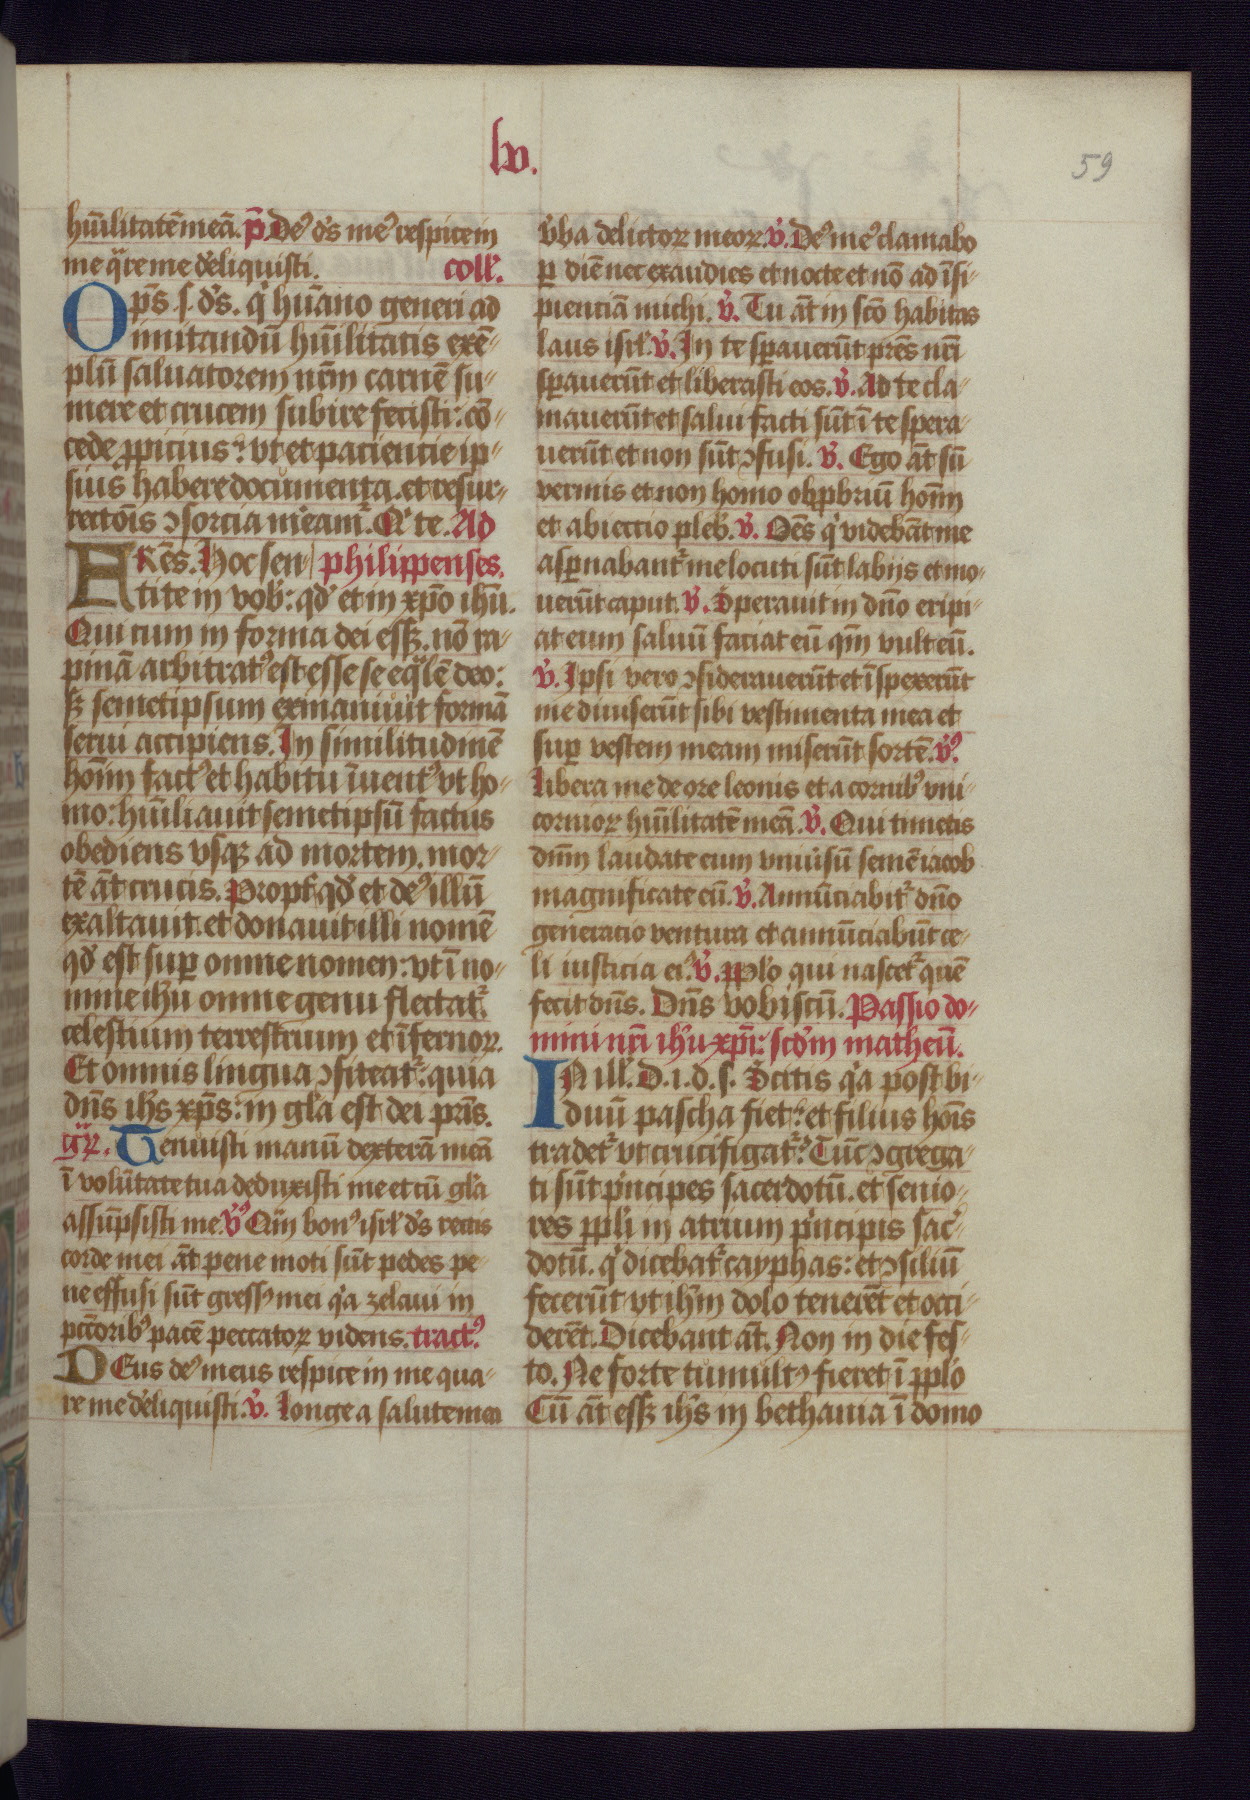 lv.
59
hūilitatē meā. p̄. De⁹ ds̄ me⁹ respice in
me q̄re me dereliquisti. coll'.
Omp̄s .s. ds̄. q' hūano generi ad
imitandū hūilitatis exē-
plū saluatorem nr̄m carnē su-
mere et crucem subire fecisti: cō-
cede ꝓpicius: vt et paciencie ip-
sius habere documenta. et resur-
rectōis ꝯsorcia mᵉeamᷣ. Q' te. Ad
FRēs. Hoc sen philippenses.
tite in vob': qd' et in xp̄o ihū.
Qui cum in forma dei essꝫ. nō ra-
pinā arbitrat⁹ est esse se eq̄lē deo:
sꝫ semetipsum exinaniuit formā
serui accipiens. In similitudinē
hom̄ fact⁹ et habitu īuent⁹ vt ho-
mo: hūiliauit semetipsū factus
obediens vsqꝫ ad mortem. mor-
tē āt crucis. Propt' qd' et de⁹ illū
exaltauit. et donauit illi nomē
qd' est suꝑ omne nomen: vt ī no-
mine ihū omne genu flectatᷣ
celestium terrestrium et īfernoꝝ.
Et omnis lingua ꝯfiteatᷣ: quia
dn̄s ihs̄ xp̄s: in gl'a est dei pr̄is.
gr̄. Tenuisti manū dexterā meā
ī volūtate tua deduxisti me et cū gl'a
assūpsisti me. v⁹ Qm̄ bon⁹ isr'l ds̄ rectis
corde mei āt pene moti sūt pedes pe-
ne effusi sūt gress⁹ mei q'a zelaui in
pccōrib⁹ pacē peccatoꝝ videns. tract⁹
DEus de⁹ meus respice in me qua-
re me dereliquisti. v̄. Longe a salute mea
v̄ba delictoꝝ meoꝝ. v̄. De⁹ me⁹ clamabo
ꝑ diē nec exaudies et nocte et nō ad īsi-
pienciā michi. v̄. Tu āt in sc̄o habitas
laus isr'l. v̄. In te sꝑauerūt pr̄es nr̄i
sꝑauerūt et liberasti eos. v̄. Ad te cla-
mauerūt et salui facti sūt ī te spera-
uerūt et non sūt ꝯfusi. v̄. Ego āt sū
vermis et non homo obꝓbriū hom̄
et abieccio pleb'. v̄. Oēs q' videbāt me
asꝑnabantᷣ me locuti sūt labijs et mo-
uerūt caput. v̄. Sperauit in dn̄o eripi-
at eum saluū faciat eū qm̄ vult eū.
v̄. Ipsi vero ꝯsiderauerūt et īspexerūt
me diuiserūt sibi vestimenta mea et
suꝑ vestem meam miserūt sortē. v⁹
Libera me de ore leonis et a cornib⁹ vni-
cornioꝝ hūilitatē meā. v̄. Qui timetis
dn̄m laudate eum vniūsū semē iacob
magnificate eū. v̄. Annūciabitᷣ dn̄o
generacio ventura et annūciabūt ce-
li iusticiā ei⁹. v̄. pp̄lo qui nascetᷣ quē
fecit dn̄s. Dn̄s vobiscū. Passio do-
mini nr̄i ihū xp̄i: scd'm matheū.
IN ill'. D. i. d. s. Scitis q'a post bi-
duū pascha fiet: et filius hoīs
tradetᷣ vt crucifigatᷣ. Tūc ꝯgrega-
ti sūt p'ncipes sacerdotū. et senio-
res pp̄li in atrium p'ncipis sac'-
dotū. q' dicebatᷣ cayphas: et ꝯsiliū
fecerūt vt ihm̄ dolo tenerēt et occi-
derēt. Dicebant āt. Non in die fes-
to. Ne forte tumult⁹ fieret ī pp̄lo
Cū āt essꝫ ihs̄ in bethania ī domo